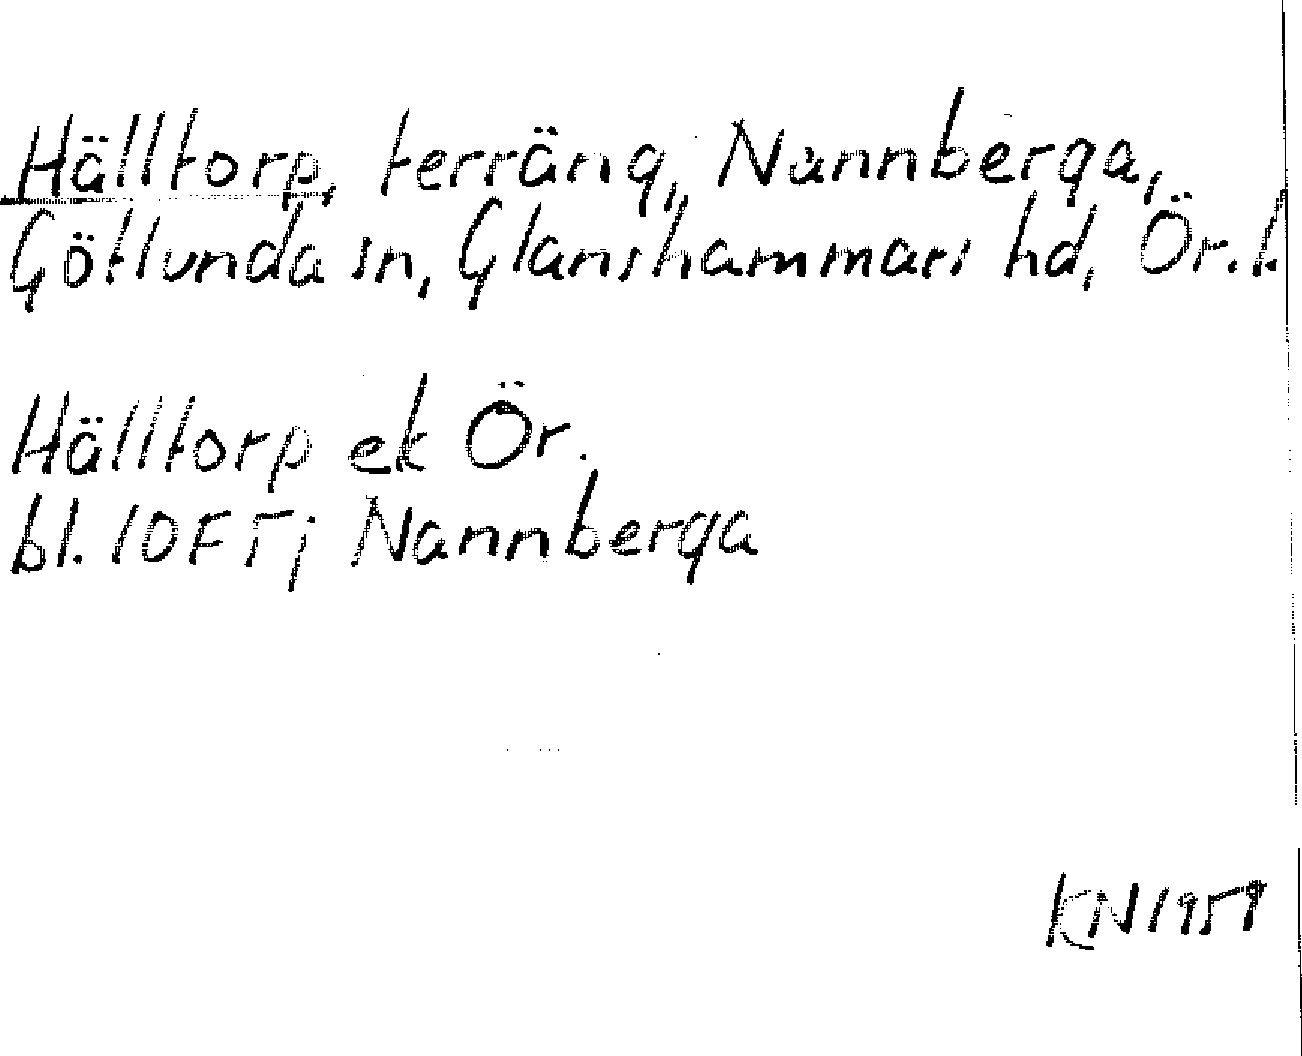 Hälltorp, terräng, Nannberga,
Götlunda sn, Glanshammars hd, Ör. l.
Hälltorp ek Ör.
bl. 10F5j Nannberga
KN 1959